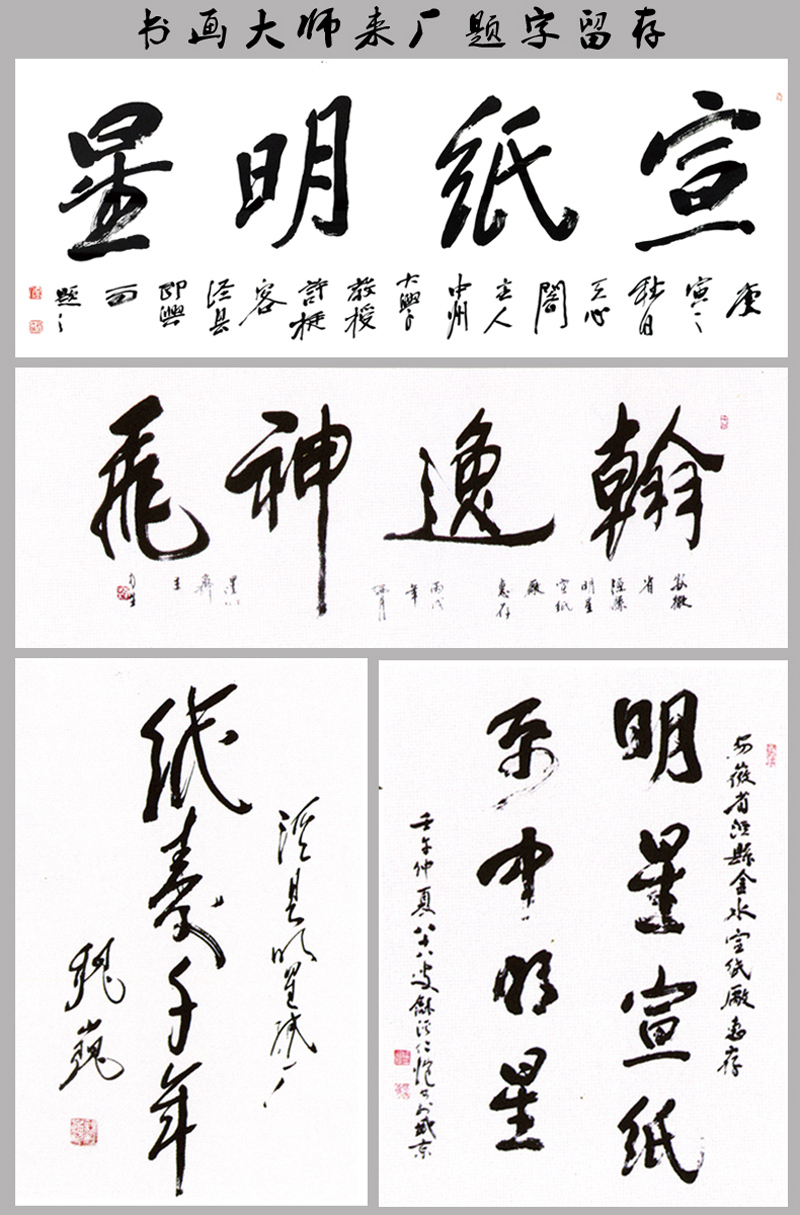 书画大师来厂题字留存
宣纸明星
庚
寅之
秋日
天心
阁
主人
中州
大兴
教授
许挺
容
泾县
即兴
而
题之
翰逸神飞
安徽
省
泾县
明星
宣纸
厂
惠存
丙戌
年
主
泾县明星纸厂
纸寿千年
魏巍
安徽省泾縣金水宣纸厰惠存
明星宣纸
系中明星
壬午仲夏八十八叟